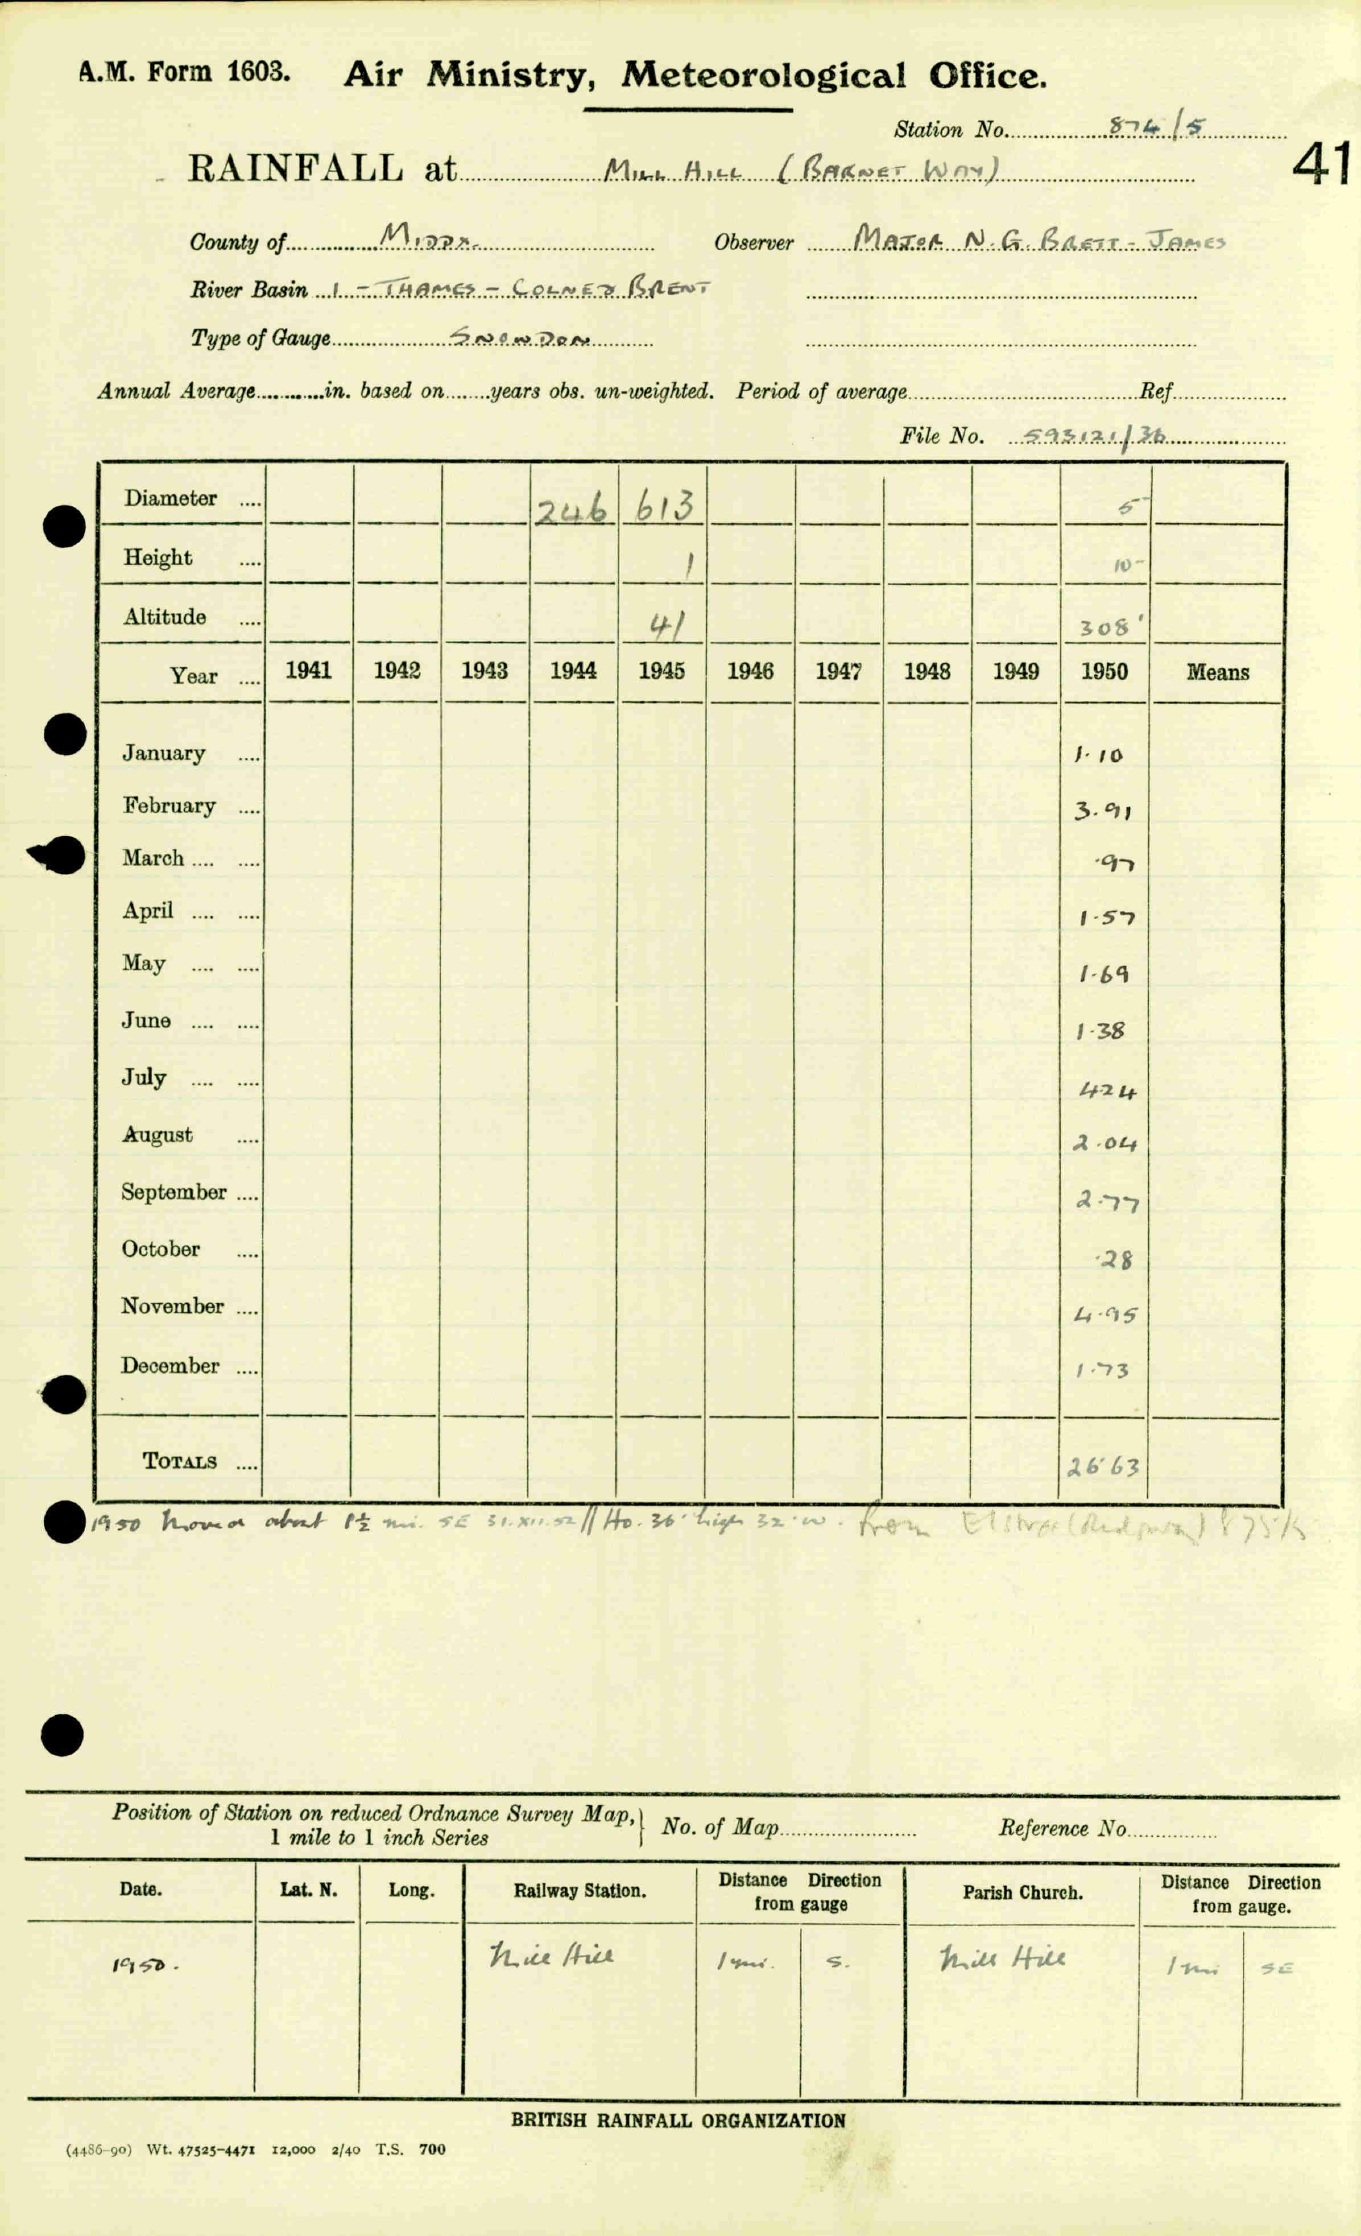 A.M. Form 1603. Air Ministry, Meteorological Office.
Station No. 874/5
41
RAINFALL at MILL HILL (BARNET WAY)
County of MIDDX. Observer MAJOR N.G. BRETT-JAMES
River Basin 1 - THAMES - COLNE & BRENT
Type of Gauge SNOWDON
Annual Average in. based on years obs. un-weighted. Period of average Ref
File No. 593121/36
Diameter 246 613 5
Height 1 10
Altitude 41 308'
Year 1941 1942 1943 1944 1945 1946 1947 1948 1949 1950 Means
January 1.10
February 3.91
March .97
April 1.57
May 1.69
June 1.38
July 4.24
August 2.04
September 2.77
October .28
November 4.95
December 1.73
TOTALS 26.63
1950 Moved about 1½ mi. SE 31.XII.52 // Ho. 36' high 32' W. from Elstree (Ridgway) 875/5
Position of Station on reduced Ordnance Survey Map, 1 mile to 1 inch Series } No. of Map Reference No.
Date. Lat. N. Long. Railway Station. Distance Direction from gauge Parish Church. Distance Direction from gauge.
1950. Mill Hill 1 mi. S. Mill Hill 1 mi SE
BRITISH RAINFALL ORGANIZATION
(4486-90) Wt. 47525-4471 12,000 2/40 T.S. 700